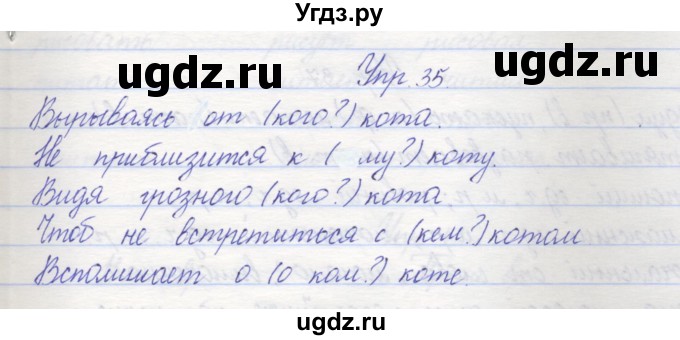 Угдз.ру
ugdz.ru
ugdz.ru
Упр. 35
Вырываясь от (кого?) кота.
Не приблизится к ( му?) коту.
Видя грозного (кого?) кота.
Чтоб не встретиться с (кем?) котом
Вспоминает о (о ком?) коте.
ugdz.ru